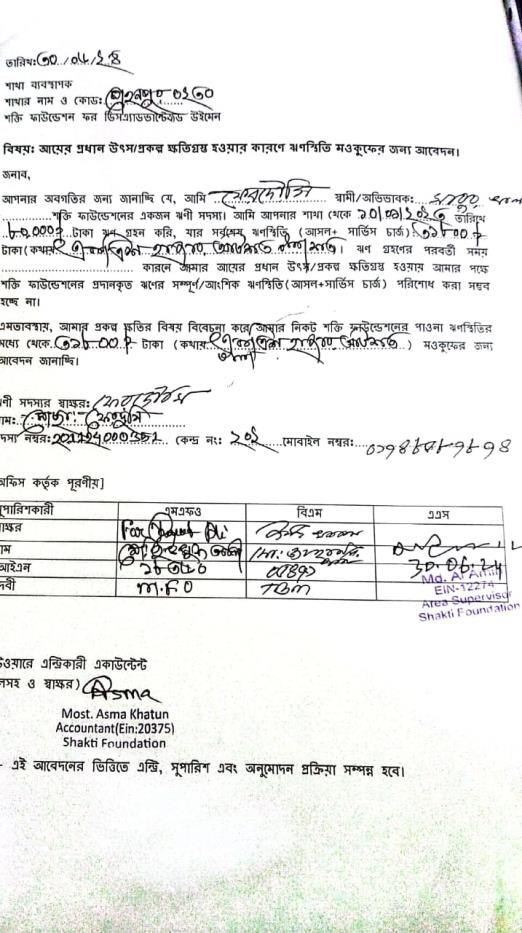 তারিখ: ৩০/০৬/২৪
শাখা ব্যবস্থাপক
শাখার নাম ও কোড: ০২৩০
শক্তি ফাউন্ডেশন ফর ডিসএ্যাডভান্টেজড উইমেন
বিষয়: আয়ের প্রধান উৎস/প্রকল্প ক্ষতিগ্রস্থ হওয়ার কারণে ঋণস্থিতি মওকুফের জন্য আবেদন।
জনাব,
আপনার অবগতির জন্য জানাচ্ছি যে, আমি ফেরদৌসি স্বামী/অভিভাবক:
শক্তি ফাউন্ডেশনের একজন ঋণী সদস্য। আমি আপনার শাখা থেকে তারিখে
টাকা ঋণ গ্রহন করি, যার সর্বশেষ ঋণস্থিতি (আসল+ সার্ভিস চার্জ)
টাকা (কথায় একত্রিশ হাজার আটশত টাকা মাত্র)। ঋণ গ্রহণের পরবর্তী সময়
কারনে আমার আয়ের প্রধান উৎস/প্রকল্প ক্ষতিগ্রস্থ হওয়ায় আমার পক্ষে
শক্তি ফাউন্ডেশনের প্রদানকৃত ঋণের সম্পূর্ণ/আংশিক ঋণস্থিতি (আসল+সার্ভিস চার্জ) পরিশোধ করা সম্ভব
হচ্ছে না।
এমতাবস্থায়, আমার প্রকল্প ক্ষতির বিষয় বিবেচনা করে আমার নিকট শক্তি ফাউন্ডেশনের পাওনা ঋণস্থিতির
মধ্যে থেকে টাকা (কথায় একত্রিশ হাজার আটশত টাকা) মওকুফের জন্য
আবেদন জানাচ্ছি।
ণী সদস্যর স্বাক্ষর: ফেরদৌসি
াম: মোছা: ফেরদৌসি
দস্য নম্বর: কেন্দ্র নং: ২০১ মোবাইল নম্বর:
অফিস কর্তৃক পূরণীয়]
সুপারিশকারী এমএফও বিএম এএস
াক্ষর
াম
আইএন 30.06.24
দবী M.F.O TBM
Md. Al Amin
EIN-12274
Area Supervisor
Shakti Foundation
টওয়ারে এন্ট্রিকারী একাউন্টেন্ট
লসহ ও স্বাক্ষর) Asma
Most. Asma Khatun
Accountant(Ein:20375)
Shakti Foundation
- এই আবেদনের ভিত্তিতে এন্ট্রি, সুপারিশ এবং অনুমোদন প্রক্রিয়া সম্পন্ন হবে।